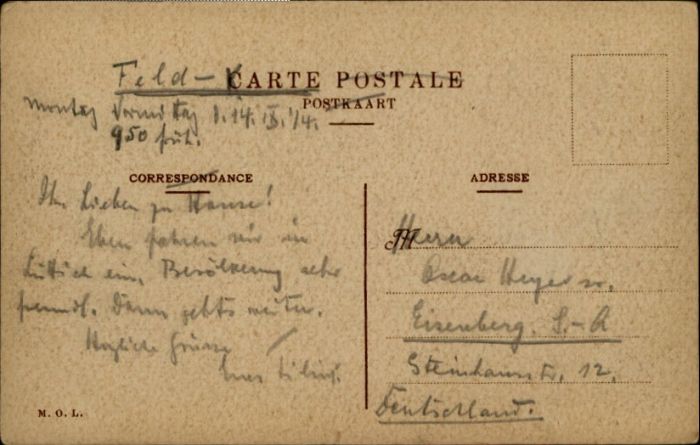 Feld-
CARTE POSTALE
POSTKAART
Montag Vormittag d. 14. IX. 14.
9 50 früh.
CORRESPONDANCE
Ihr Lieben zu Hause!
Eben fahren wir in
Lüttich ein, Bevölkerung sehr
freundl. Dann gehts weiter.
Herzliche Grüsse
Euer
ADRESSE
M Herrn
Oscar Heyer sr.
Eisenberg. S.-A
Steinhausstr, 12,
Deutschland.
M. O. L.